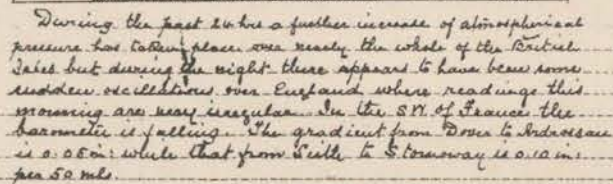 During the past 24 hrs a further increase of atmospherical
pressure has taken place over nearly the whole of the British
Isles but during the night there appears to have been some
sudden oscillations over England where readings this
morning are very irregular. In the SW of France the
barometer is falling. The gradient from Dover to Ardrossan
is 0.05 in: while that from Leith to Stornoway is 0.10 in:
per 50 mls.